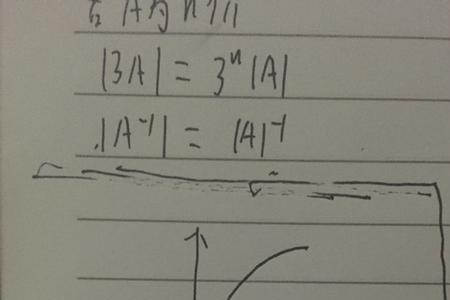 若A为n阶
|3A| = 3ⁿ|A|
|A⁻¹| = |A|⁻¹